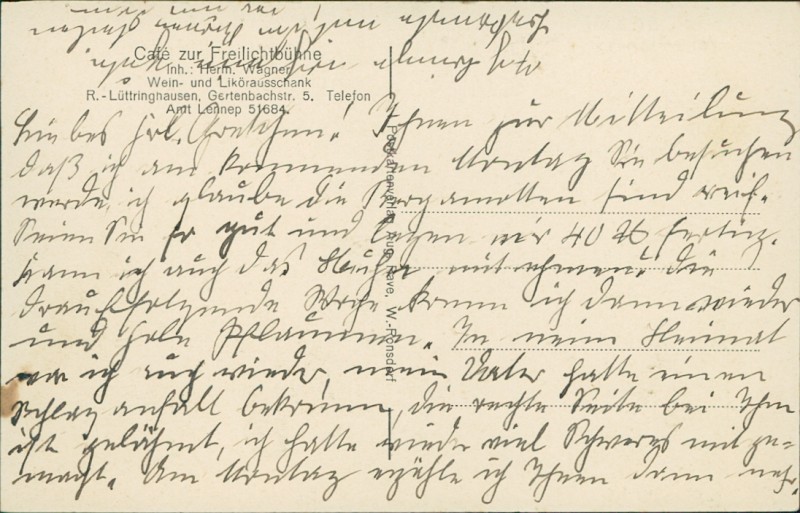 Café zur Freilichtbühne
Inh.: Herm. Wagner
Wein- und Likörausschank
R.-Lüttringhausen, Gertenbachstr. 5. Telefon
Amt Lennep 51684
Postkartenverlag Aug. Rave, W.-Ronsdorf
Liebes Frl. Gretchen! Ihnen zur Mitteilung
daß ich am kommenden Montag Sie besuchen
werde, ich glaube die Bergamotten sind reif.
Seien Sie so gut und legen mir 40 ℔ fertig.
Kann ich auch das mitnehmen? Die
drauffolgende Woche komm ich dann wieder
und hole Pflaumen. In mein Heimat
war ich auch wieder, mein Vater hatte einen
Schlaganfall bekommen, die rechte Seite bei Ihm
ist gelähmt, ich hatte wieder viel Schweres mitge-
macht. Am Montag erzähle ich Ihnen dann mehr.